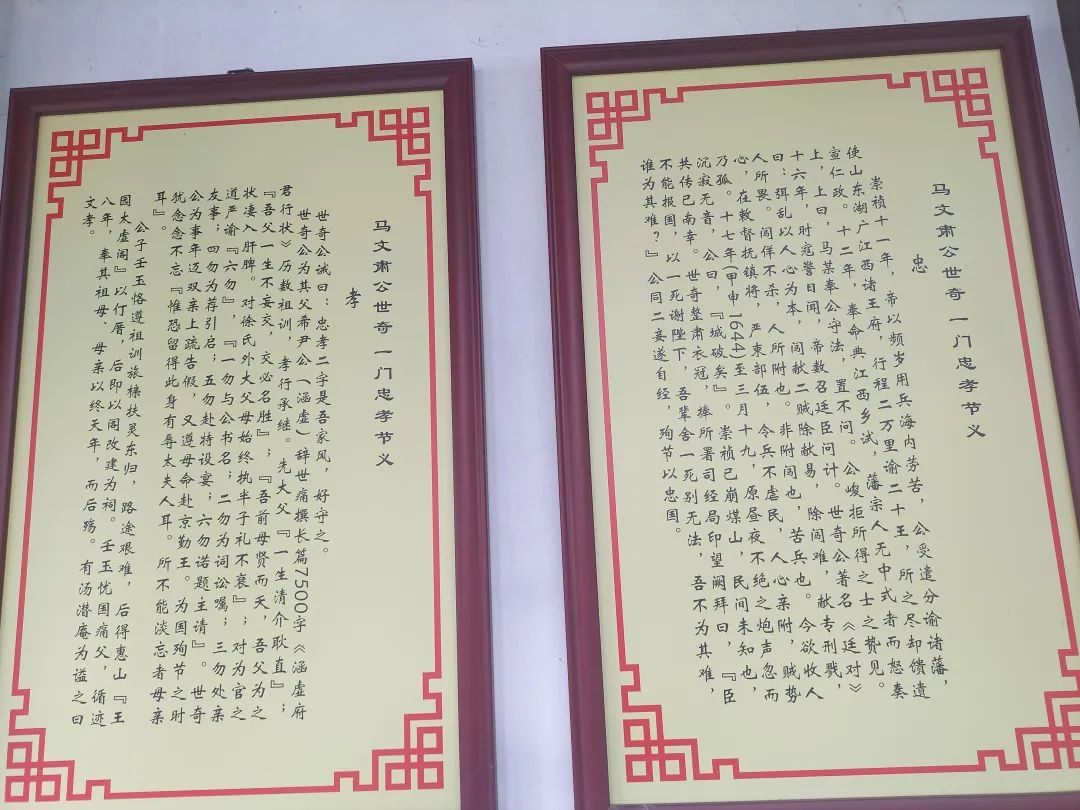 马文肃公世奇一门忠孝节义
忠
崇祯十一年，帝以频岁用兵海内劳苦，公受遣分谕诸藩，
使山东湖广江西诸王府，行程二万里谕二十王，所之尽却馈遗
宣仁政。十二年，奉命典江西乡试，藩宗人无中式者而怒奏
上，上曰，马某奉公守法，置不问。公峻拒所得之士之贽见。
十六年，时寇警日闻，帝数召廷臣问计。世奇公著名《廷对》
曰：弭乱以人心为本，闯献二贼除献易，除闯难，献专刑戮，
人所畏。闯佯不杀，人所附也。非附闯也，苦兵也。今欲收人
心，在敕督抚镇将，严束部伍，令兵不虐民，人心亲附，贼势
乃孤。十七年(甲申1644)至三月十九，原昼夜不绝之炮声忽而
沉寂无音，公曰，『城破矣』。崇祯已崩煤山，民间未知也，
共传已南幸。世奇整肃衣冠，捧所署司经局印望阙拜曰，『臣
不能报国，以一死谢陛下，吾辈舍一死别无法，吾不为其难，
谁为其难？』公同二妾遂自经，殉节以忠国。
马文肃公世奇一门忠孝节义
孝
世奇公诫曰：忠孝二字是吾家风，好守之。
世奇公为其父希尹公（涵虚）辞世痛撰长篇7500字《涵虚府
君行状》历数祖训，孝行承继。先大父『一生清介耿直』；
『吾父一生不妄交，交必名胜』；『吾前母贤而夭，吾父为之
状凄入肝脾。对徐氏外大父母始终执半子礼不衰』；对为官之
道严谕『六勿』，『一勿与公书名；二勿为词讼嘱；三勿处亲
友事；四勿为荐引启；五勿赴特设宴；六勿诺题主请』。世奇
公为事年迈双亲上疏告假，又遵母命赴京勤王。为国殉节之时
犹念念不忘『惟恐留得此身有辱太夫人耳。所不能淡忘者母亲
耳』。
公子壬玉恪遵祖训旅榇扶灵东归，路途艰难，后得惠山『王
园太虚阁』以停厝，后即以阁改建为祠。壬玉忧国痛父，循迹
八年，奉其祖母、母亲以终天年，而后殇。有汤潜庵为谥之曰
文孝。